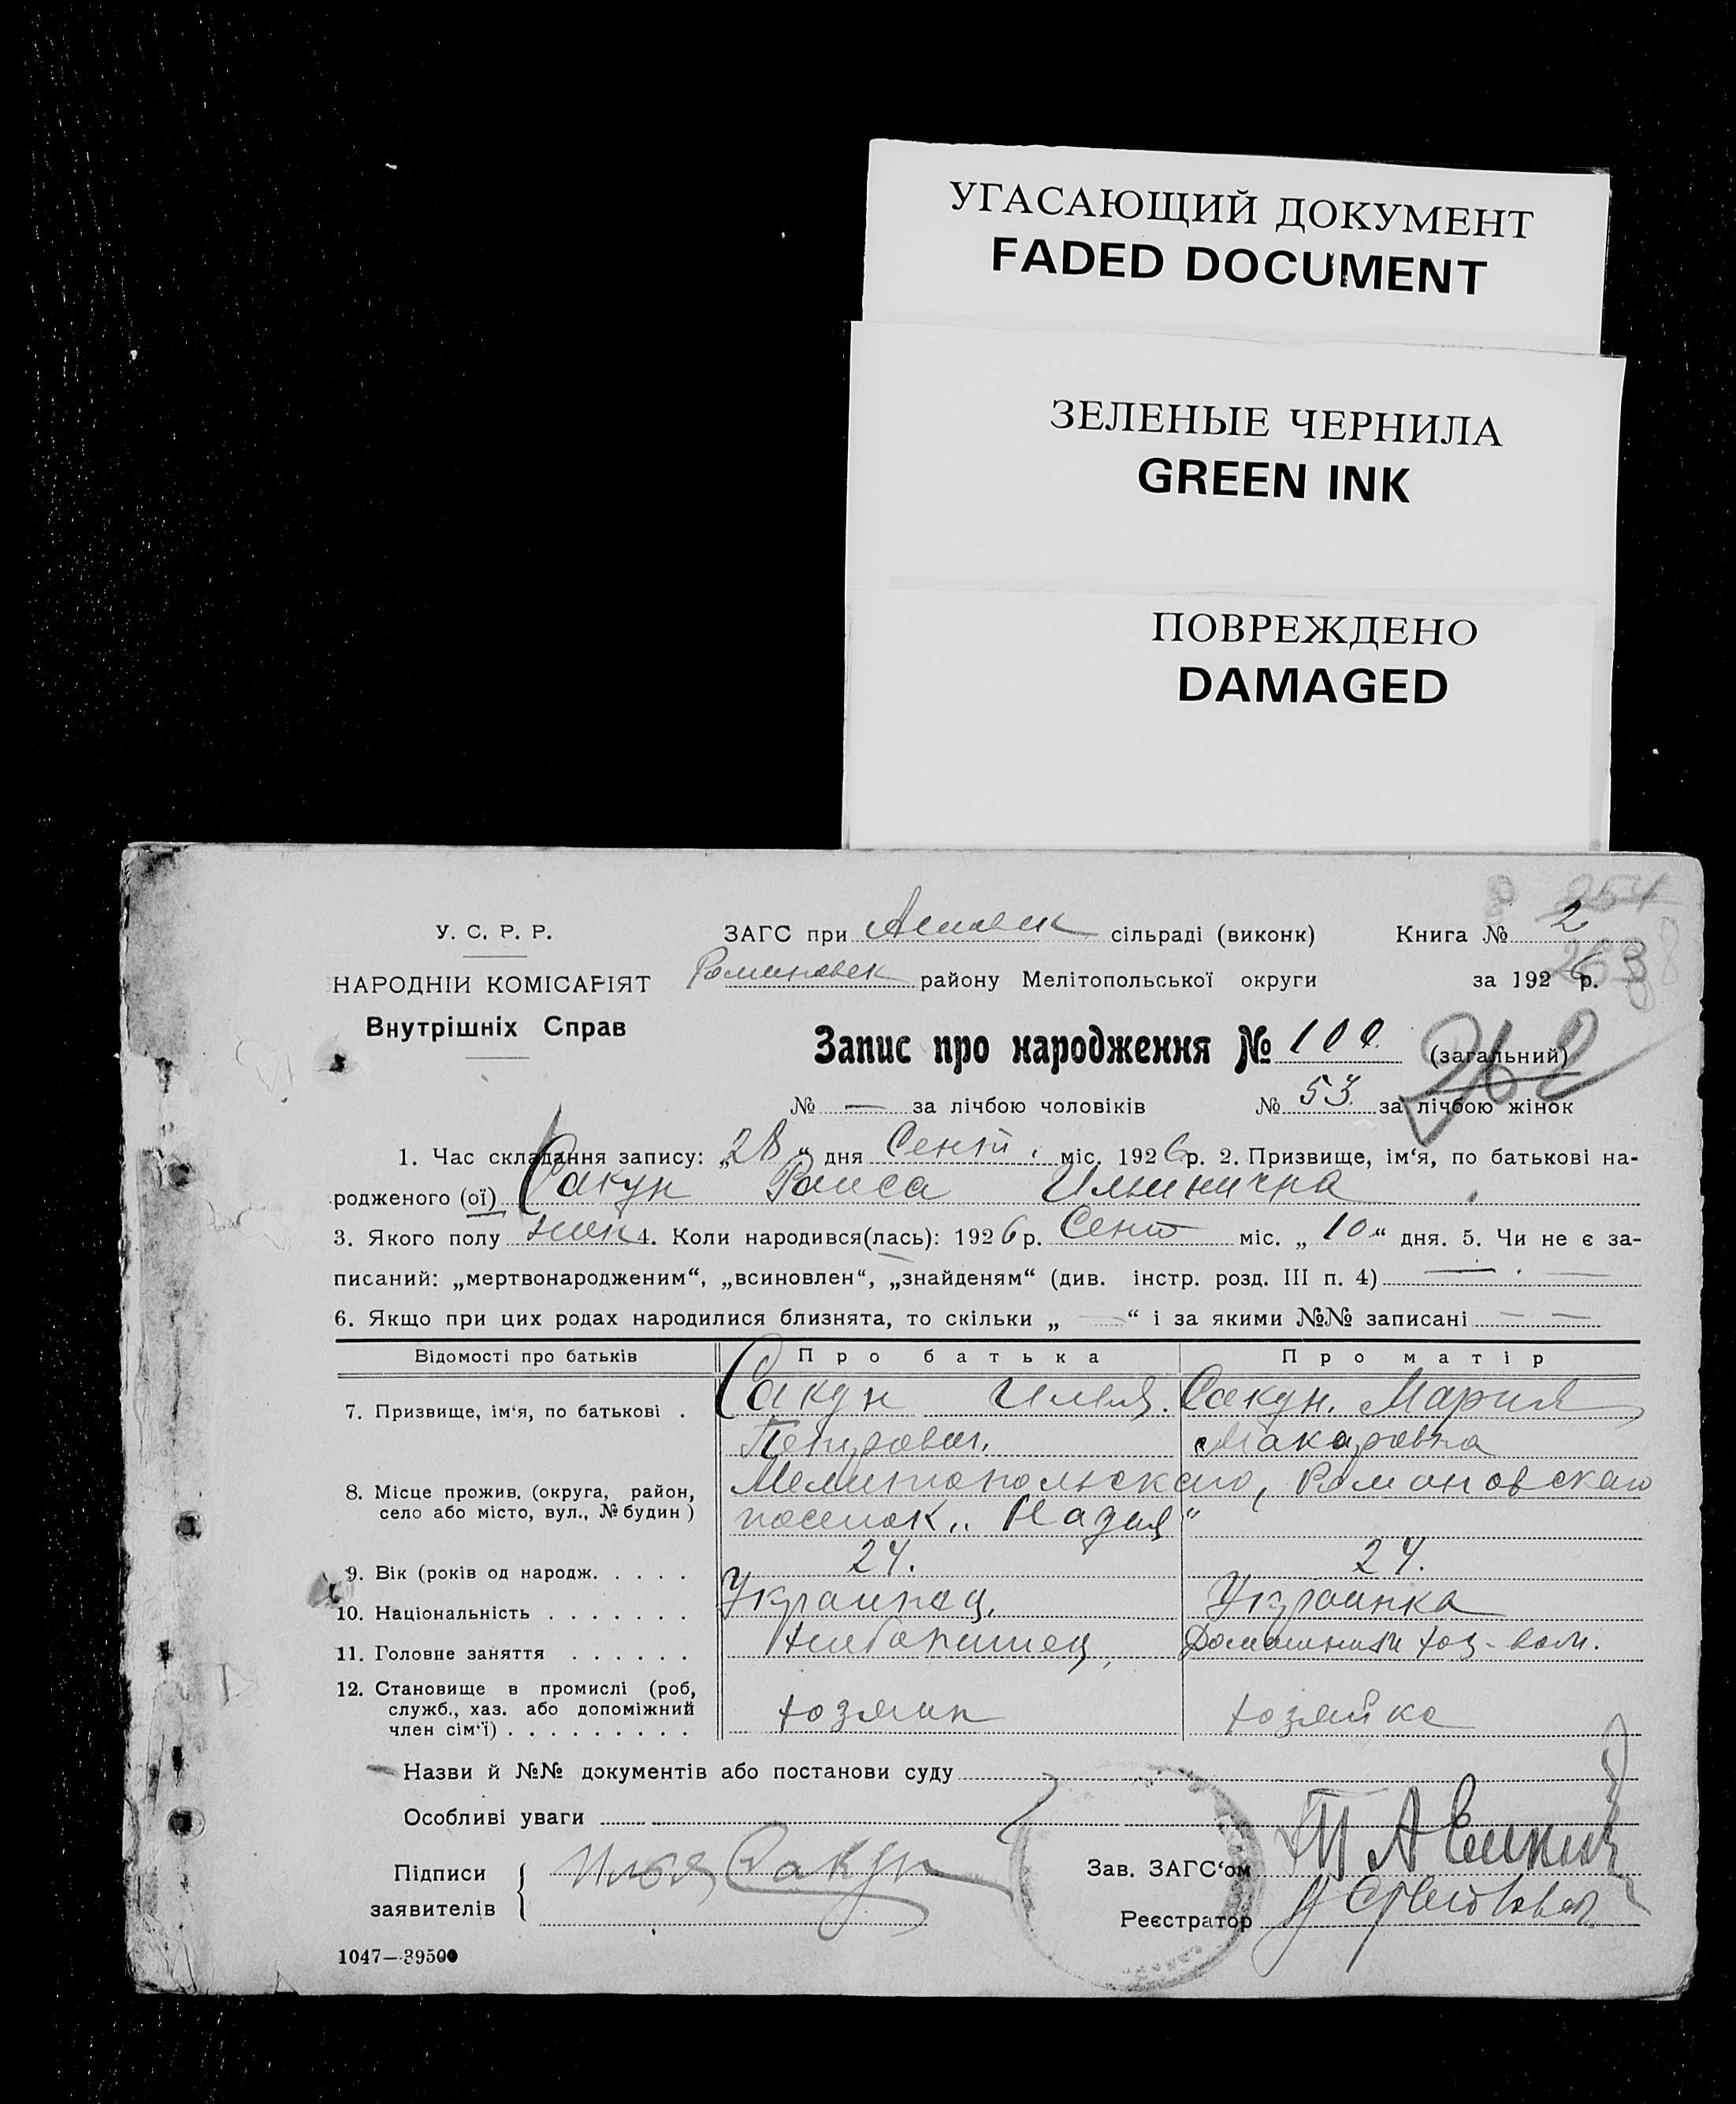 УГАСАЮЩИЙ ДОКУМЕНТ
FADED DOCUMENT
ЗЕЛЕНЫЕ ЧЕРНИЛА
GREEN INK
ПОВРЕЖДЕНО
DAMAGED
У. С. Р. Р.
НАРОДНІЙ КОМІСАРІЯТ
Внутрішніх Справ
ЗАГС при сільраді (виконк) Книга № 2
району Мелітопольської округи за 1926 р.
Запис про народження № 100 (загальний)
262
№ — за лічбою чоловіків № 53 за лічбою жінок
1. Час складання запису: „28“ дня Сент. міс. 1926 р. 2. Призвище, ім‘я, по батькові на-
родженого (ої) Сакун Раиса Ильинична
3. Якого полу жен 4. Коли народився(лась): 1926 р. Сент міс. „10“ дня. 5. Чи не є за-
писаний: „мертвонародженим“, „всиновлен“, „знайденям“ (див. інстр. розд. III п. 4) — —
6. Якщо при цих родах народилися близнята, то скільки „—“ і за якими №№ записані — —
Відомості про батьків Про батька Про матір
7. Призвище, ім‘я, по батькові . Сакун Илья. Сакун. Мария
Петрович. Макаровна
8. Місце прожив. (округа, район, село або місто, вул., № будин) Мелитопольского, Романовского
поселок „Надия“
9. Вік (років од народж. . . . . 24. 24.
10. Національність . . . . . . . Украинец. Украинка
11. Головне заняття . . . . . . Хлебопашец, Домашним хоз-вом.
12. Становище в промислі (роб, служб., хаз. або допоміжний член сім‘ї) . . . . . . . . . хозяин хозяйка
Назви й №№ документів або постанови суду
Особливі уваги
Підписи заявителів Илья Сакун
Зав. ЗАГС‘ом
Реєстратор
1047—39500